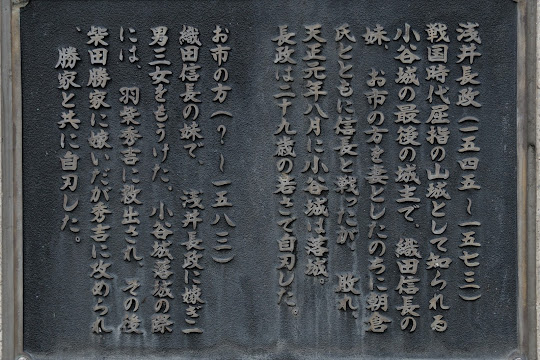 浅井長政(一五四五～一五七三)
戦国時代屈指の山城として知られる
小谷城の最後の城主で、織田信長の
妹、お市の方を妻としたのちに朝倉
氏とともに信長と戦ったが、敗れ、
天正元年八月に小谷城は落城。
長政は二十九歳の若さで自刃した。
お市の方(?～一五八三)
織田信長の妹で、浅井長政に嫁ぎ二
男三女をもうけた。小谷城落城の際
には、羽柴秀吉に救出され、その後
柴田勝家に嫁いだが秀吉に攻められ
、勝家と共に自刃した。